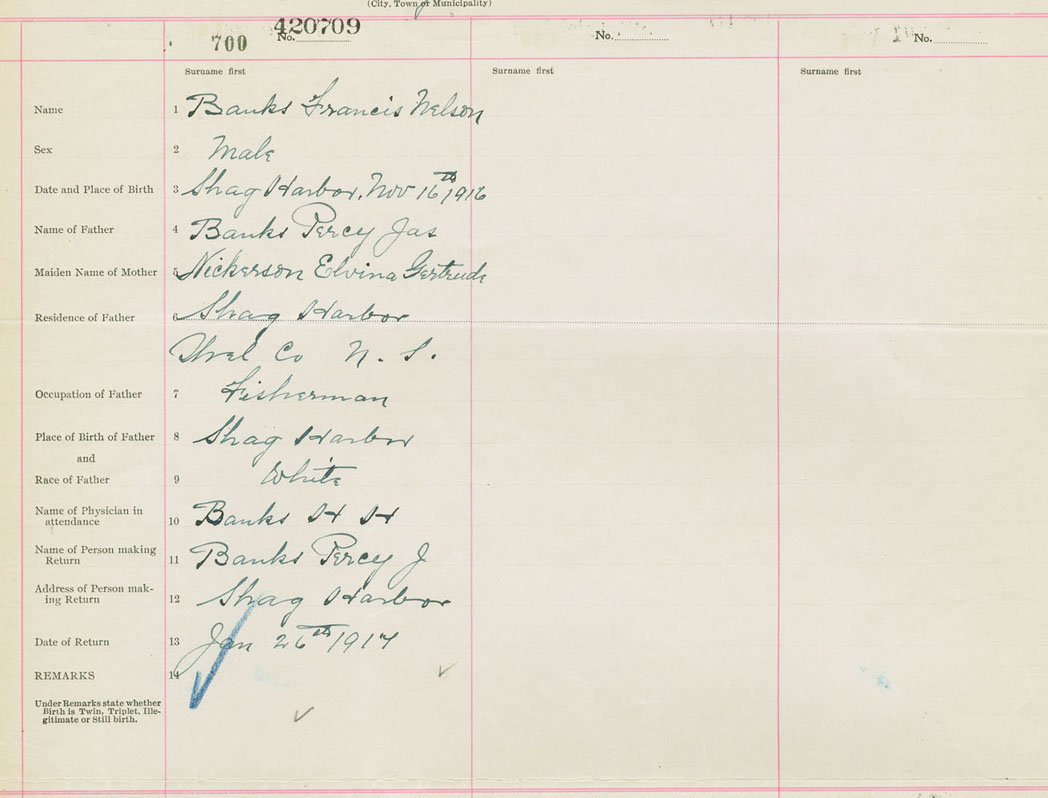 (City, Town or Municipality)
420709
700 No.
No.
No.
Surname first
Surname first
Surname first
Name 1 Banks Francis Nelson
Sex 2 Male
Date and Place of Birth 3 Shag Harbor, Nov 16th 1916
Name of Father 4 Banks Percy Jas
Maiden Name of Mother 5 Nickerson Elvina Gertrude
Residence of Father 6 Shag Harbor
Co N. S.
Occupation of Father 7 Fisherman
Place of Birth of Father 8 Shag Harbor
and
Race of Father 9 White
Name of Physician in
attendance 10 Banks H H
Name of Person making
Return 11 Banks Percy J
Address of Person mak-
ing Return 12 Shag Harbor
Date of Return 13 Jan 26th 1917
REMARKS 14
Under Remarks state whether
Birth is Twin, Triplet, Ille-
gitimate or Still birth.